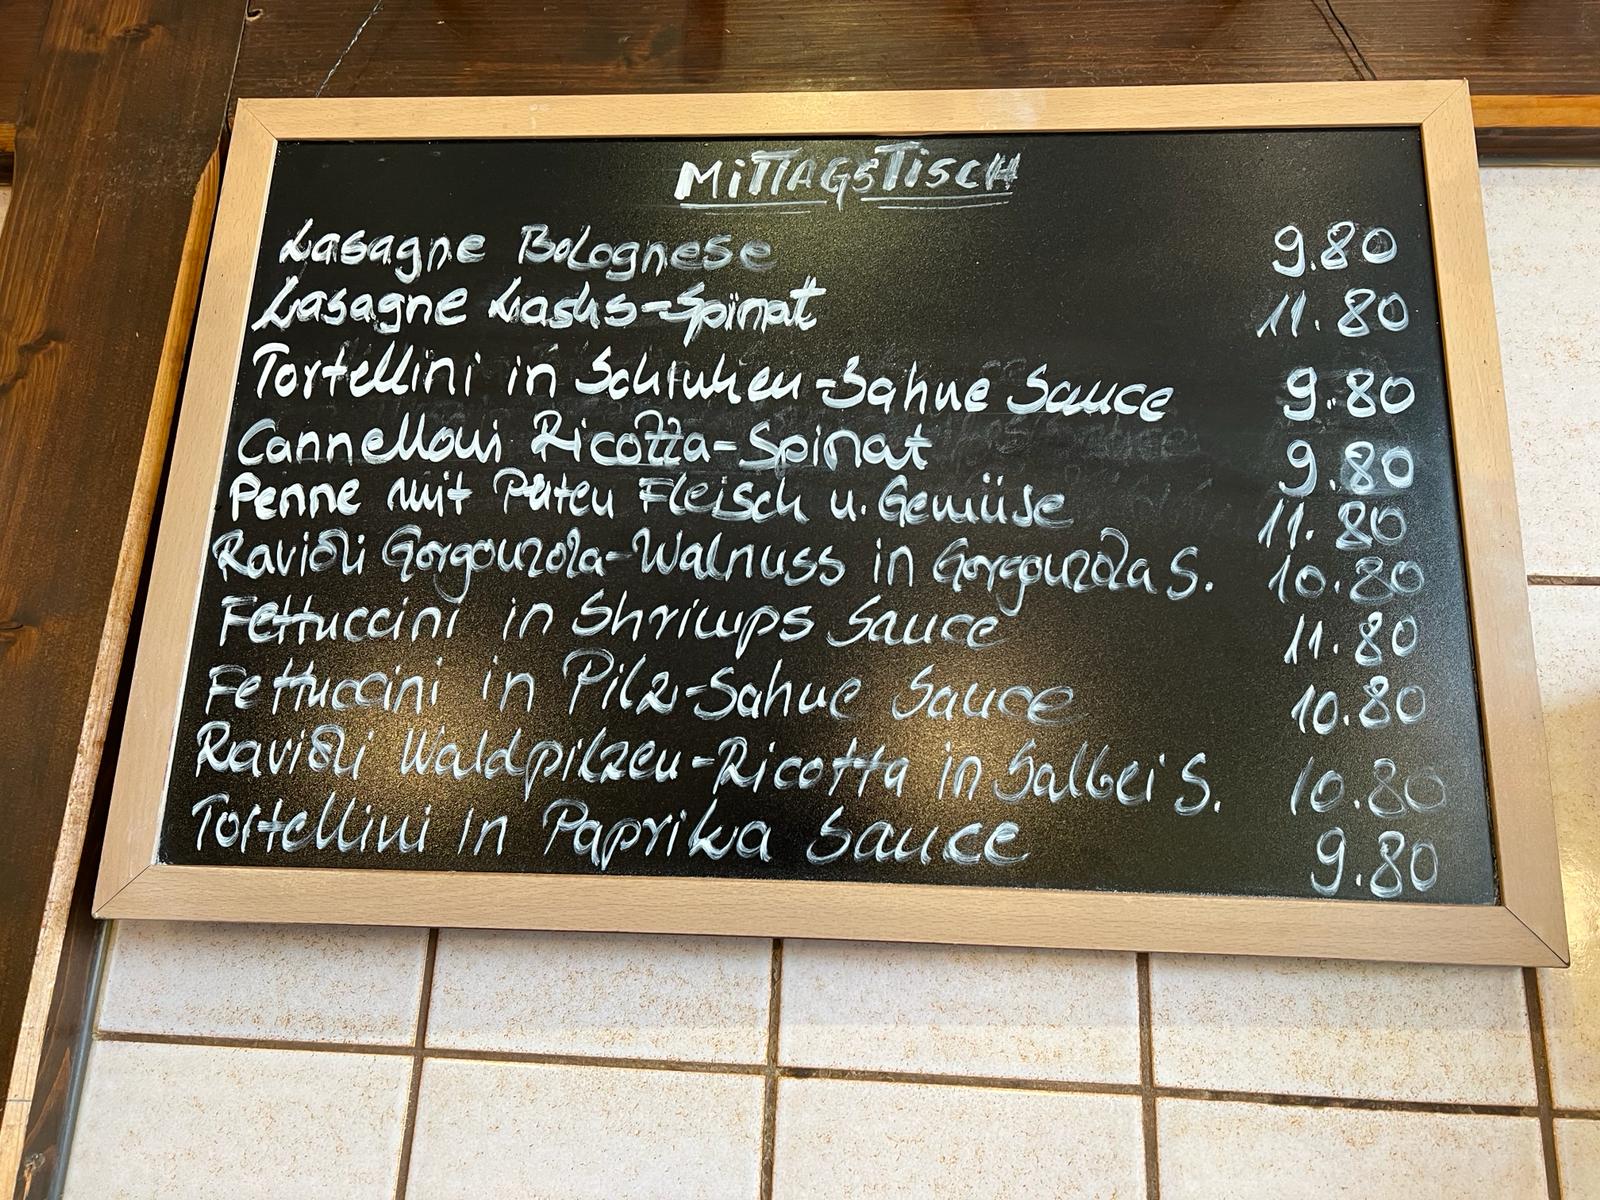 MITTAGSTISCH
Lasagne Bolognese 9.80
Lasagne Lachs-Spinat 11.80
Tortellini in Schinken-Sahne Sauce 9.80
Cannelloni Ricotta-Spinat 9.80
Penne mit Puten Fleisch u. Gemüse 11.80
Ravioli Gorgonzola-Walnuss in Gorgonzola S. 10.80
Fettuccini in Shrimps Sauce 11.80
Fettuccini in Pilz-Sahne Sauce 10.80
Ravioli Waldpilzen-Ricotta in Salbei S. 10.80
Tortellini in Paprika Sauce 9.80